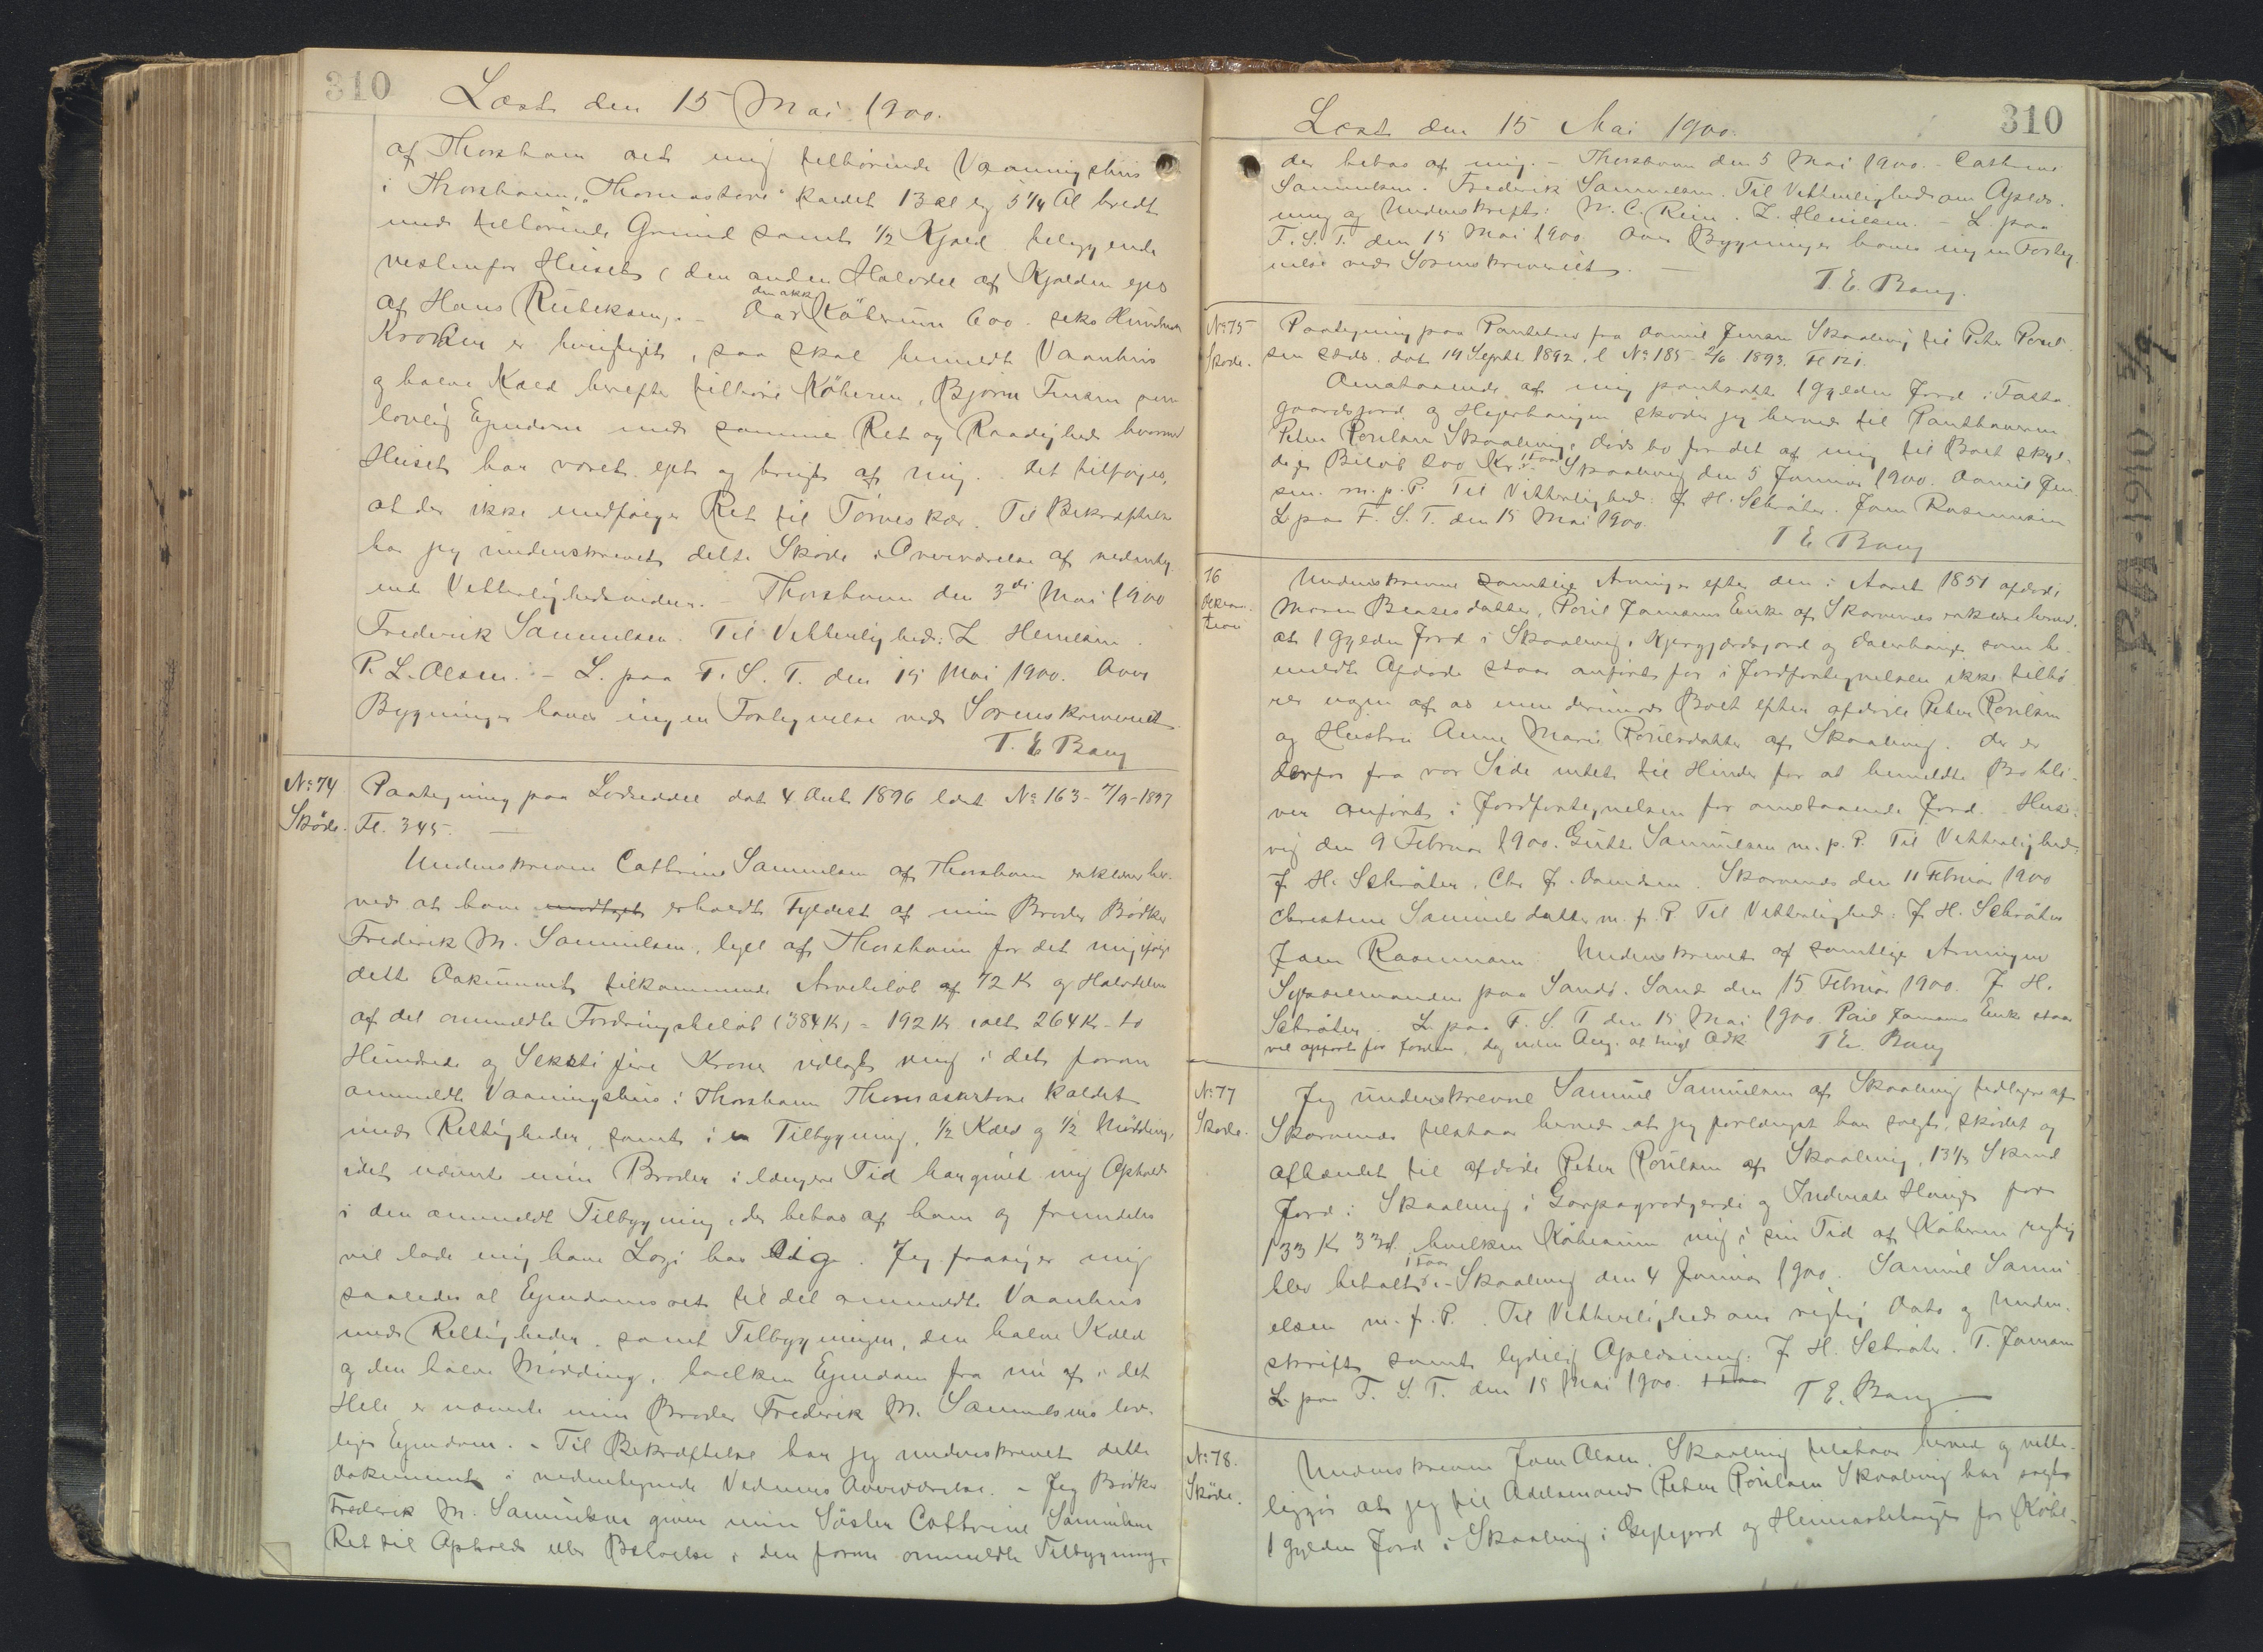 310
Læst den 15 Mai 1900.
af Thorshavn det mig tilhørende Vaaningshus
i Thorshavn, "Thomastovu" kaldet 13 Al og 5 1/4 Al bredt
med tilhørende Grund samt 1/2 Kjæld beliggende
vestenfor Huset (den anden Halvdel af Kjælden ejes
af Hans Rubeksen). - Da Köbesum 600. seks Hundrede
den akk
Kroner er berigtiget, saa skal bemeldt Vaanhus
og halve Kæld herefter tilhøre Köberen, Bjørn Finsen som
lovlig Ejendom med samme Ret og Raadighed hvormed
Huset har været ejet og brugt af mig. Det tilføjes,
at der ikke medfølger Ret til Törveskær. Til Bekræftelse
har jeg underskrevet dette Skøde i Overværelse af nedenteg
nede Vitterlighedsvidner. - Thorshavn den 3die Mai 1900
Frederik Samuelsen. Til Vitterlighed: Z. Heinesen.
P. L. Olsen. - L. paa F. S. T. den 15 Mai 1900. Over
Bygninger haves ingen Fortegnelse ved Sorenskriveriet.
T. E Bang
No 74
Skøde.
Paategning paa Lodseddel dat 4 Aub 1896 læst No 163 - 7/9-1897
Fl. 345. -
Underskrevne Cathrine Samuelsen af Thorshavn erklærer her-
ved at have modtaget erholdt Fyldest af min Broder Bødker
Frederik M. Samuelsen, lige af Thorshavn for det mig ifølge
dette Dokument tilkommende Arvebeløb af 72 Kr og Halvdelen
af det ommeldte Fordringsbeløb (384 Kr) = 192 Kr ialt 264 Kr - to
Hundrede og Seksti fire Kroner udlagt mig i det foran
ommeldte Vaaningshus i Thorshavn Thomasartove kaldet
med Rettigheder, samt i en Tilbygning, 1/2 Kæld og 1/2 Mødding,
idet nævnte min Broder i længere Tid har givet mig Ophold
i den ommeldt Tilbygning, der bebos af ham og fremdeles
vil lade mig have Logi hos sig. Jeg frasiger mig
saaledes al Ejendomsret til det ommeldte Vaanhus
med Rettigheder, samt Tilbygningen, den halve Kæld
og den halve Mødding, hvilken Ejendom fra nu af i det
Hele er nævnte min Broder Frederik M. Samuelsens lov-
lige Ejendom. - Til Bekræftelse har jeg underskrevet dette
Dokument i nedentegnede Vidners Overværelse. - Jeg Bødker
Frederik M. Samuelsen giver min Söster Cathrine Samuelsen
Ret til Ophold eller Beboelse i den foran ommeldte Tilbygning,
310
Læst den 15 Mai 1900.
der bebos af mig. - Thorshavn den 5 Mai 1900. - Cathrine
Samuelsen. Frederik Samuelsen. Til Vitterlighed om Oplæs-
ning og Underskrift: M. C. Rein. Z. Heinesen. - L. paa
F. S. T. den 15 Mai 1900. Over Bygninger haves ingen Forteg
nelse ved Sorenskriveriet. -
T. E. Bang.
No 75
Skøde.
Paategning paa Pantebrev fra Daniel Jensen Skaalevig til Peter Poul-
sen sstds. dat 19 Septbr. 1892, l No 185 - 2/6 1893. Fl 121.
Omstaaende af mig pantsatte 1 Gylden Jord i Tofta
gaardsjord og Hejerhaugen skøder jeg herved til Panthaveren
Peter Poulsen Skaalevigs Døds bo for det af mig til Boet skyl-
dige Beløb 200 Kr. Skaalevig den 5 Januar 1900. Daniel Jen
sen. m. p. P. Til Vitterlighed: J. H. Schröter. Joen Rasmussen
L paa F. S. T. den 15 Mai 1900.
T E Bang
76
Deklara-
tion
Underskrevne samtlige Arvinger efter den i Aaret 1851 afdøde
Maren Blasesdatter, Poul Joensens Enke af Skarvenes erklære herved,
at 1 Gylden Jord i Skaalevig, Kjergjærdsjord og Dalerhauge som be
meldte Afdøde staar anført for i Jordfortegnelsen ikke tilhø
rer nogen af os men derimod Boet efter afdøde Peter Poulsen
og Hustru Anne Marie Poulsdatter af Skaalevig. Der er
derfor fra vor Side intet til Hinder for at bemeldte Bo bli-
ver anført i Jordfortegnelsen for omstaaende Jord. - Husa-
vig den 9 Februar 1900. Gutte Samuelsen m. p. P. Til Vitterlighed:
J. H. Schröter. Chr J. Davidsen. Skarvenes den 11 Februar 1900
Christine Samuelsdatter m. p. P Til Vitterlighed: J. H. Schröter
Joen Rasmussen. Underskrevet af samtlige Arvinger
Sysselmanden paa Sandö. Sand den 15 Februar 1900. J. H.
Schröter. L paa F. S. T den 15 Mai 1900. Poul Joensens Enke staar
vel opført for Jorden, dog uden Ang. af tingl Adk T E. Bang
No 77
Skøde.
Jeg underskrevne Samuel Samuelsen af Skaalevig fødlagt af
Skarvenes tilstaar herved at jeg forlængst har solgt, skødet og
afhændet til afdøde Peter Poulsen af Skaalevig, 13 1/3 Skind
Jord i Skaalevig i Garpagrødgerdi og Inderste Hauge for
133 Kr 33 Ø. hvilken Köbesum mig i sin Tid af Köberen rigtig
blev betalt. - Skaalevig den 4 Januar 1900. Samuel Samu
elsen m. p. P. Til Vitterlighed om rigtig Dato og Under-
skrift samt lydelig Oplæsning: J. H. Schröter. T. Joensen
L paa F. S. T. den 15 Mai 1900.
T E. Bang
No 78.
Skøde.
Underskrevne Joen Olsen, Skaalevig tilstaar herved og vitter-
liggjør at jeg til Odelsmand Peter Poulsen Skaalevig har solgt
1 Gylden Jord i Skaalevig i og for Købe-
5/9.
1910